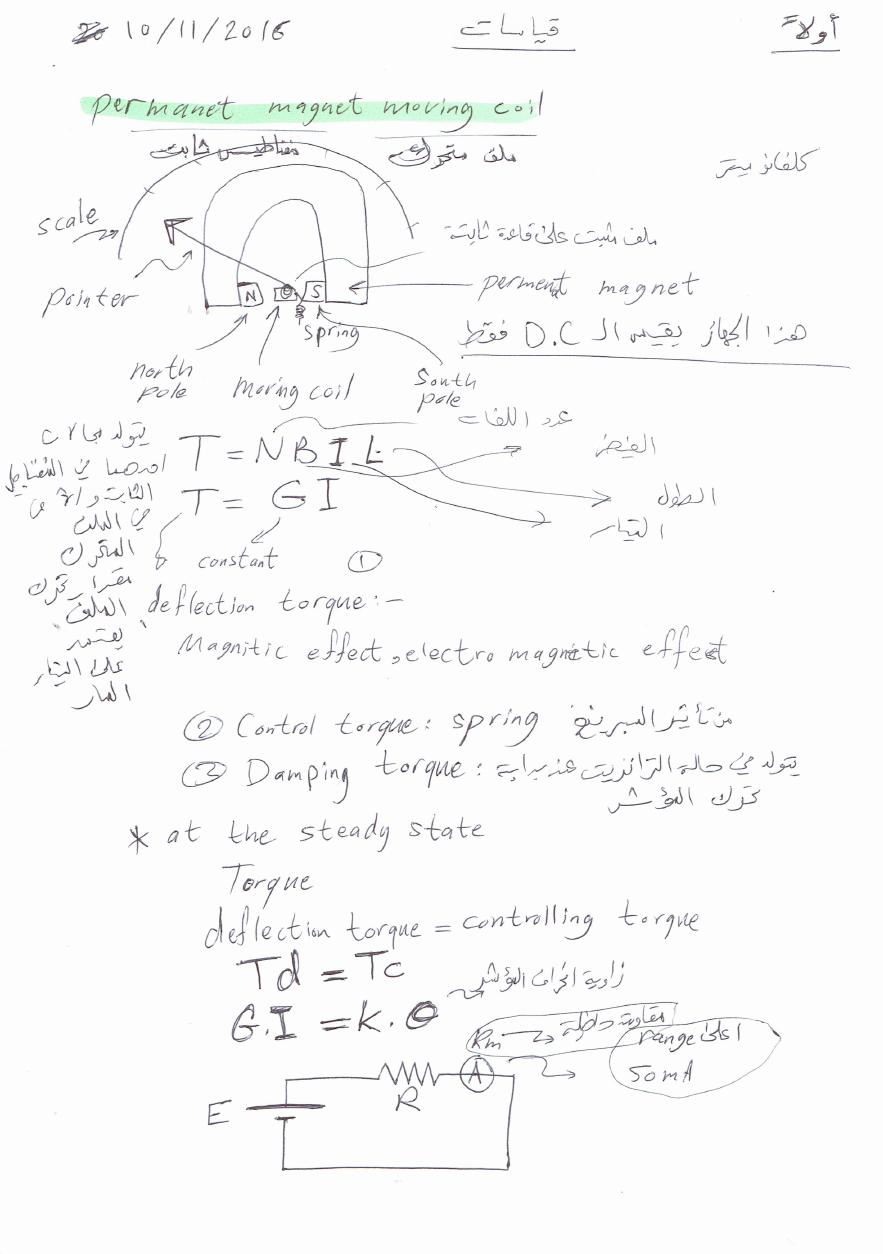 أولاً
قياسات
10/11/2016
permanet magnet moving coil
مغناطيس ثابت
ملف متحرك
كلفانوميتر
scale
pointer
ملف مثبت على قاعة ثابتة
perment magnet
N
S
spring
هذا الجهاز يقيس الـ D.C فقط
north pole
moving coil
South pole
عدد اللفات
T = NBIL
الفيض
الطول
التيار
T = GI
constant
يتولد مجالات
احدهما في المغناطيس
الثابت والآخر
في الملف
المتحرك
مقدار تحرك
الملف
يعتمد
على التيار
المار
①
deflection torque:-
Magnitic effect, electro magnetic effect
② Control torque: spring من تأثير السبرينغ
③ Damping torque: يتولد في حالة الترانزيت عند بداية
تحرك المؤشر
* at the steady state
Torque
deflection torque = controlling torque
Td = Tc
زاوية انحراف المؤشر
G.I = K.θ
Rm → مقاومة داخلية
اعلى range
50mA
E
R
A